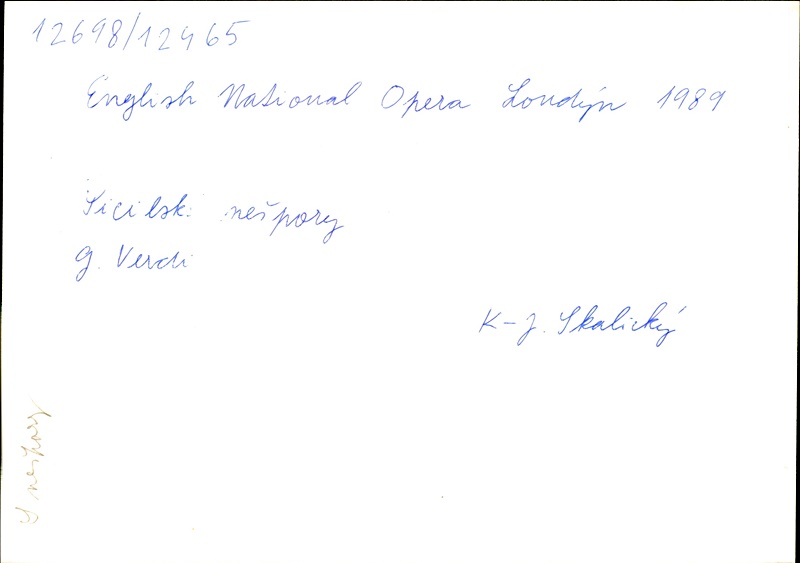 12698/12465
English National Opera Londýn 1989
Sicilské nešpory
G. Verdi
K-J. Skalický
S nešpory